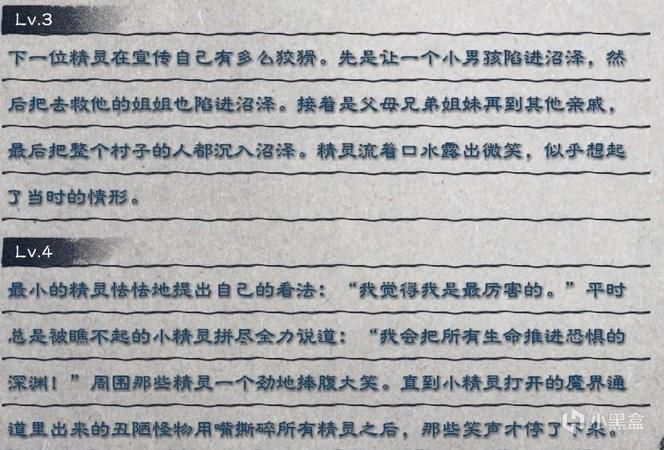 Lv.3
下一位精灵在宣传自己有多么狡猾。先是让一个小男孩陷进沼泽，然
后把去救他的姐姐也陷进沼泽。接着是父母兄弟姐妹再到其他亲戚，
最后把整个村子的人都沉入沼泽。精灵流着口水露出微笑，似乎想起
了当时的情形。
Lv.4
最小的精灵怯怯地提出自己的看法：“我觉得我是最厉害的。”平时
总是被瞧不起的小精灵拼尽全力说道：“我会把所有生命推进恐惧的
深渊！”周围那些精灵一个劲地捧腹大笑。直到小精灵打开的魔界通
道里出来的丑陋怪物用嘴撕碎所有精灵之后，那些笑声才停了下来。
小黑盒